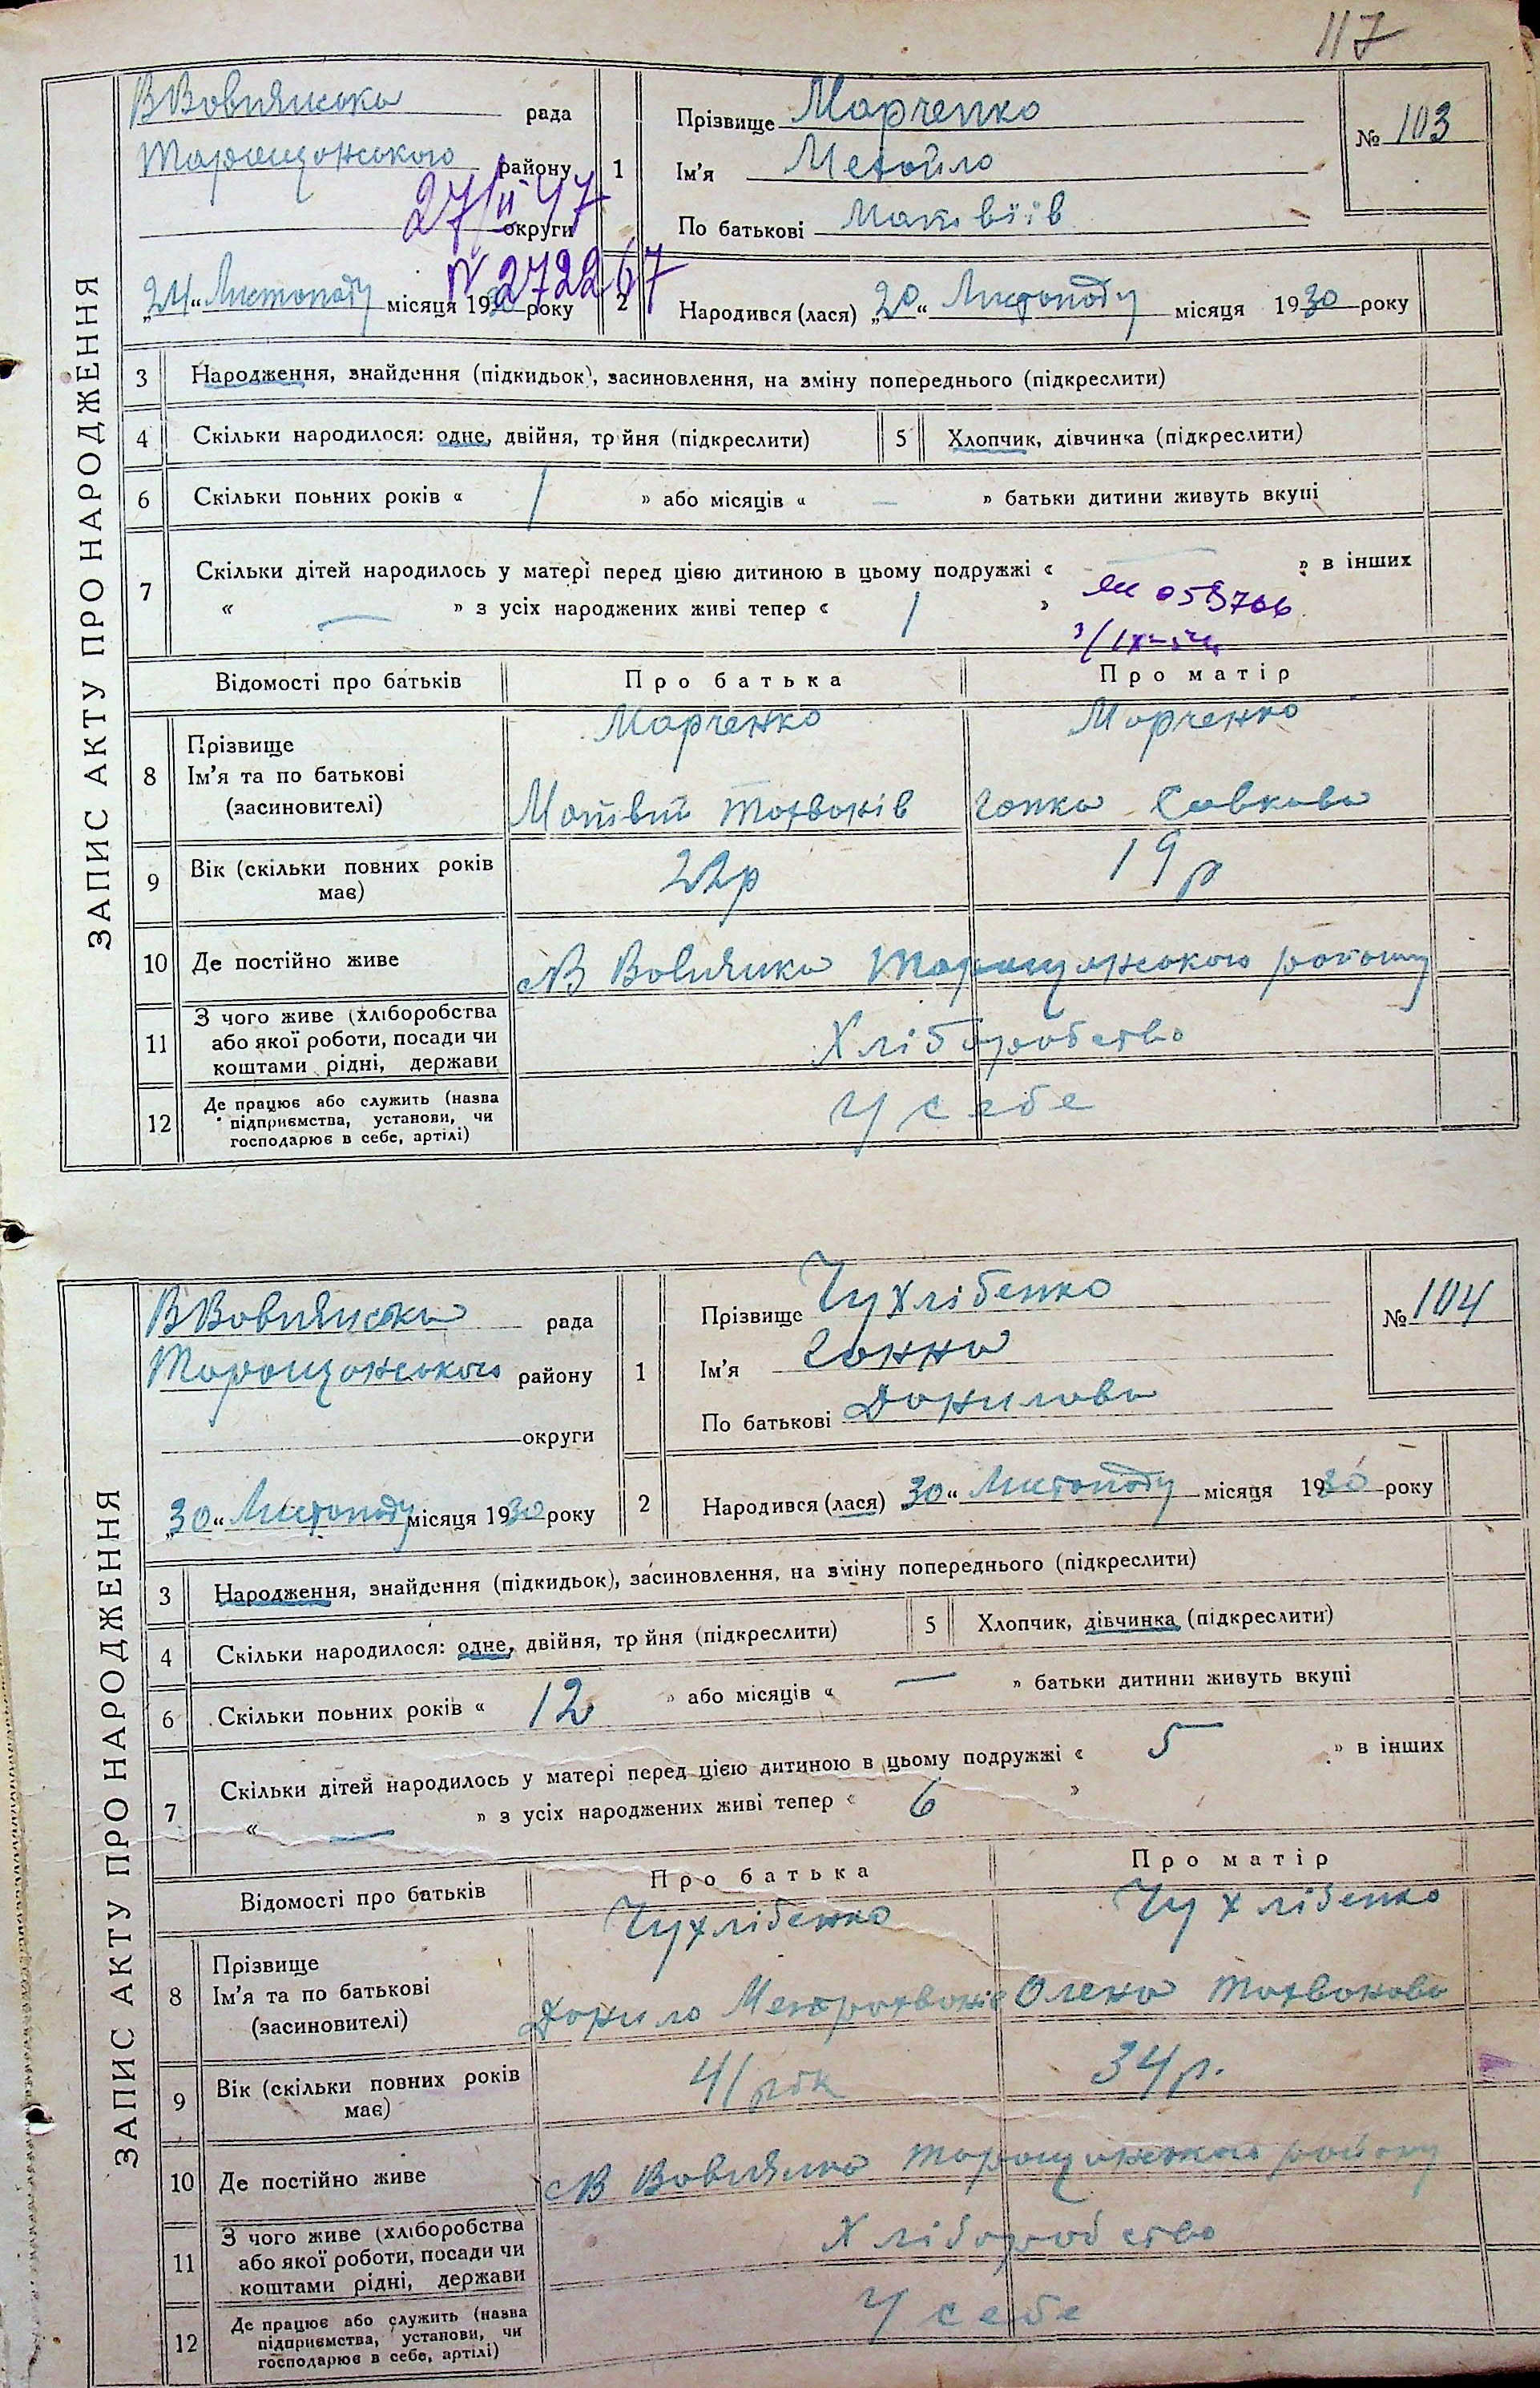 117
ЗАПИС АКТУ ПРО НАРОДЖЕННЯ
ВВовнянська рада
Таращанського району
округи
27/II 47
N 272267
„24“ Листопаду місяця 1930 року
1
Прізвище Марченко
Ім'я Михайло
По батькові Матвіїв
№ 103
2
Народився (лася) „20“ Листопаду місяця 1930 року
3 Народження, знайдення (підкидьок), засиновлення, на зміну попереднього (підкреслити)
4 Скільки народилося: одне, двійня, тр йня (підкреслити) 5 Хлопчик, дівчинка (підкреслити)
6 Скільки повних років « 1 » або місяців « — » батьки дитини живуть вкупі
7 Скільки дітей народилось у матері перед цією дитиною в цьому подружжі « — » в інших
« — » з усіх народжених живі тепер « 1 »
059706
Відомості про батьків Про батька Про матір
8 Прізвище Марченко Марченко
Ім'я та по батькові
(засиновителі) Матвій Гапка Савкова
9 Вік (скільки повних років має) 22р 19р
10 Де постійно живе В Вовнянка Таращанського району
11 З чого живе (хліборобства або якої роботи, посади чи коштами рідні, держави Хліборобство
12 Де працює або служить (назва підприємства, установи, чи господарює в себе, артілі) У себе
ЗАПИС АКТУ ПРО НАРОДЖЕННЯ
ВВовнянська рада
Таращанського району
округи
„30“ Листопаду місяця 1930 року
1
Прізвище Чухлібенко
Ім'я Ганна
По батькові Данилова
№ 104
2
Народився (лася) 30“ Листопаду місяця 1930 року
3 Народження, знайдення (підкидьок), засиновлення, на зміну попереднього (підкреслити)
4 Скільки народилося: одне, двійня, тр йня (підкреслити) 5 Хлопчик, дівчинка (підкреслити)
6 Скільки повних років « 12 » або місяців « — » батьки дитини живуть вкупі
7 Скільки дітей народилось у матері перед цією дитиною в цьому подружжі « 5 » в інших
« — » з усіх народжених живі тепер « 6 »
Відомості про батьків Про батька Про матір
8 Прізвище Чухлібенко Чухлібенко
Ім'я та по батькові
(засиновителі) Данило Олена
9 Вік (скільки повних років має) 41 рік 34р.
10 Де постійно живе В Вовнянка Таращанського району
11 З чого живе (хліборобства або якої роботи, посади чи коштами рідні, держави Хліборобство
12 Де працює або служить (назва підприємства, установи, чи господарює в себе, артілі) У себе